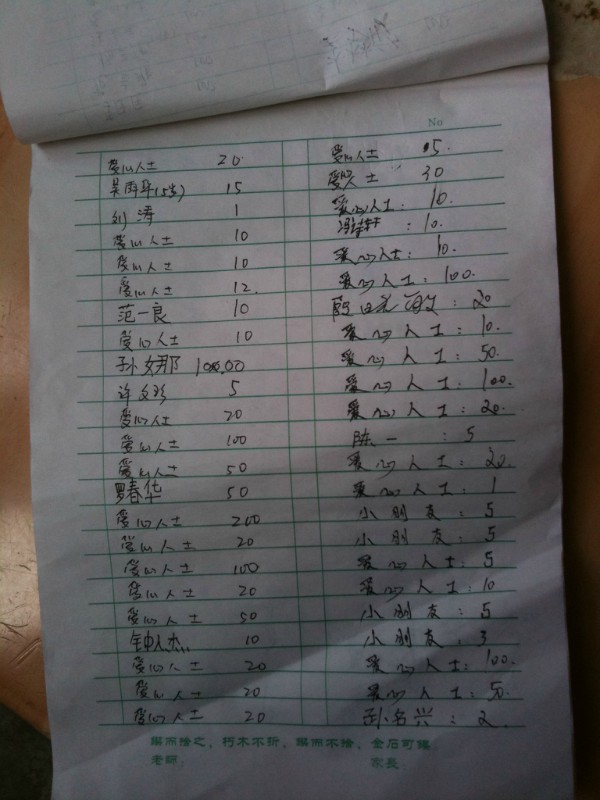 No
爱心人士 20
15
刘涛 1
爱心人士 10
爱心人士 10
爱心人士 12.
范一良 10
爱心人士 10
孙女那 100.00
许文彬 5
爱心人士 20
爱心人士 100
爱心人士 50
罗春华 50
爱心人士 200
爱心人士 20
爱心人士 100
爱心人士 20
爱心人士 50
钟人杰 10
爱心人士 20
爱心人士 20
爱心人士 20
爱心人士 5.
爱心人士 30
爱心人士: 10.
: 10.
爱心人士: 10.
爱心人士: 100.
: 20
爱心人士: 10.
爱心人士: 50.
爱心人士: 100.
爱心人士: 20.
陈一 : 5
爱心人士: 20.
爱心人士: 1
小朋友: 5
小朋友: 5
爱心人士: 5
爱心人士: 10
小朋友: 5
小朋友: 3
爱心人士: 100.
爱心人士: 50.
孙名兴: 2.
鍥而捨之，朽木不折，鍥而不捨，金石可鏤
老師： 家長：